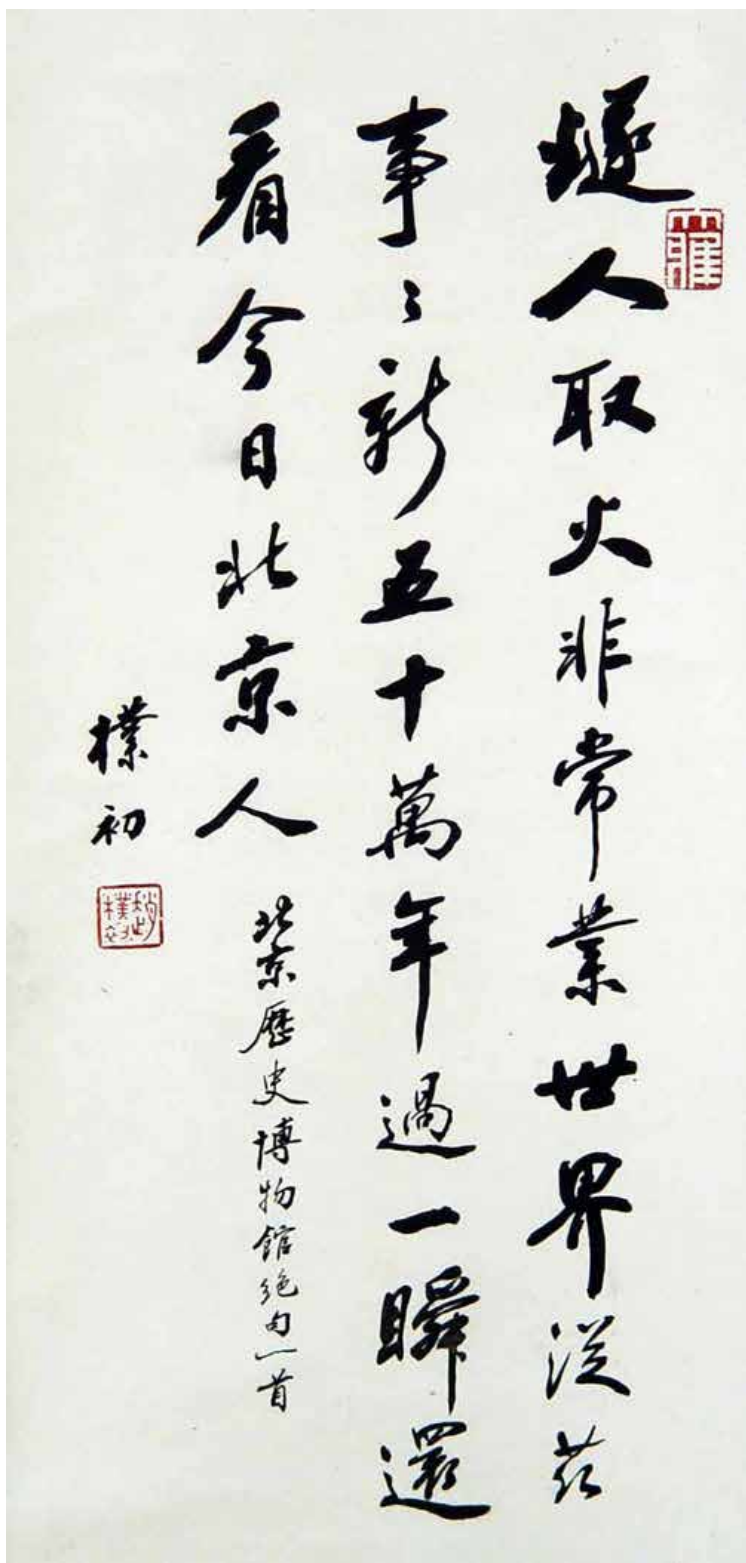 燧人取火非常業世界從茲
事〻新五十萬年過一瞬還
看今日北京人
北京歷史博物館絕句一首
樸初
趙樸初